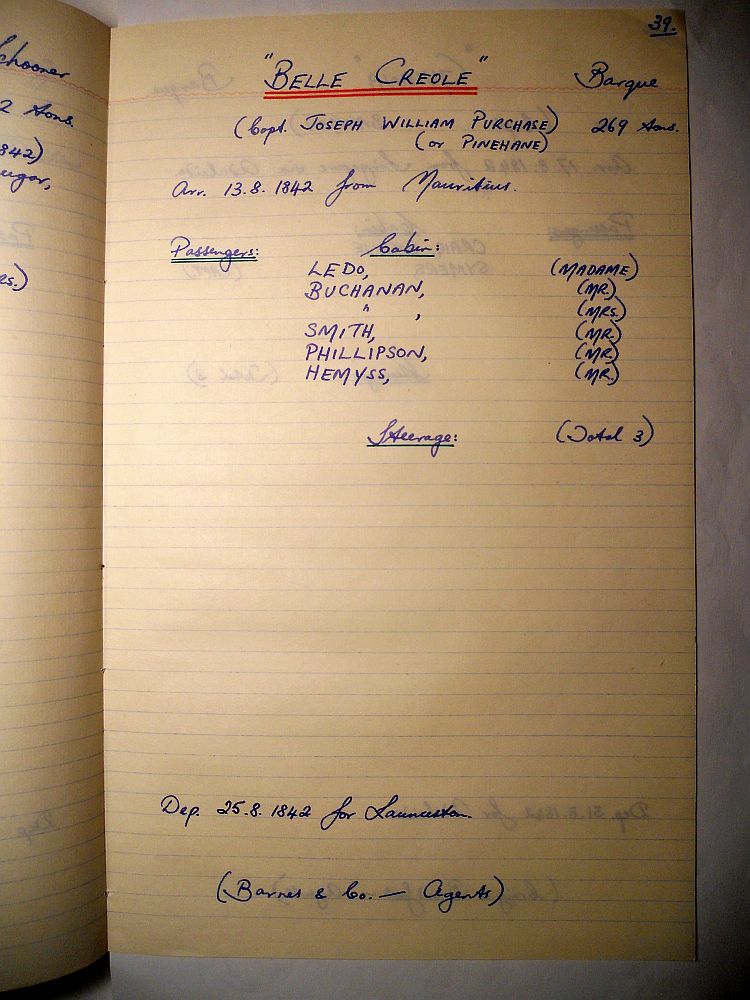 chooner
2 tons.
842)
ugar,
rs.)
39.
"BELLE CREOLE" Barque
(Capt. JOSEPH WILLIAM PURCHASE) 269 tons.
(or PINEHANE)
Arr. 13.8.1842 from Mauritius.
Passengers: Cabin:
LEDO, (MADAME)
BUCHANAN, (MR.)
" , (MRS.)
SMITH, (MR.)
PHILLIPSON, (MR)
HEMYSS, (MR.)
Steerage: (Total 3)
Dep. 25.8.1842 for Launceston.
(Barnes & Co. — Agents)